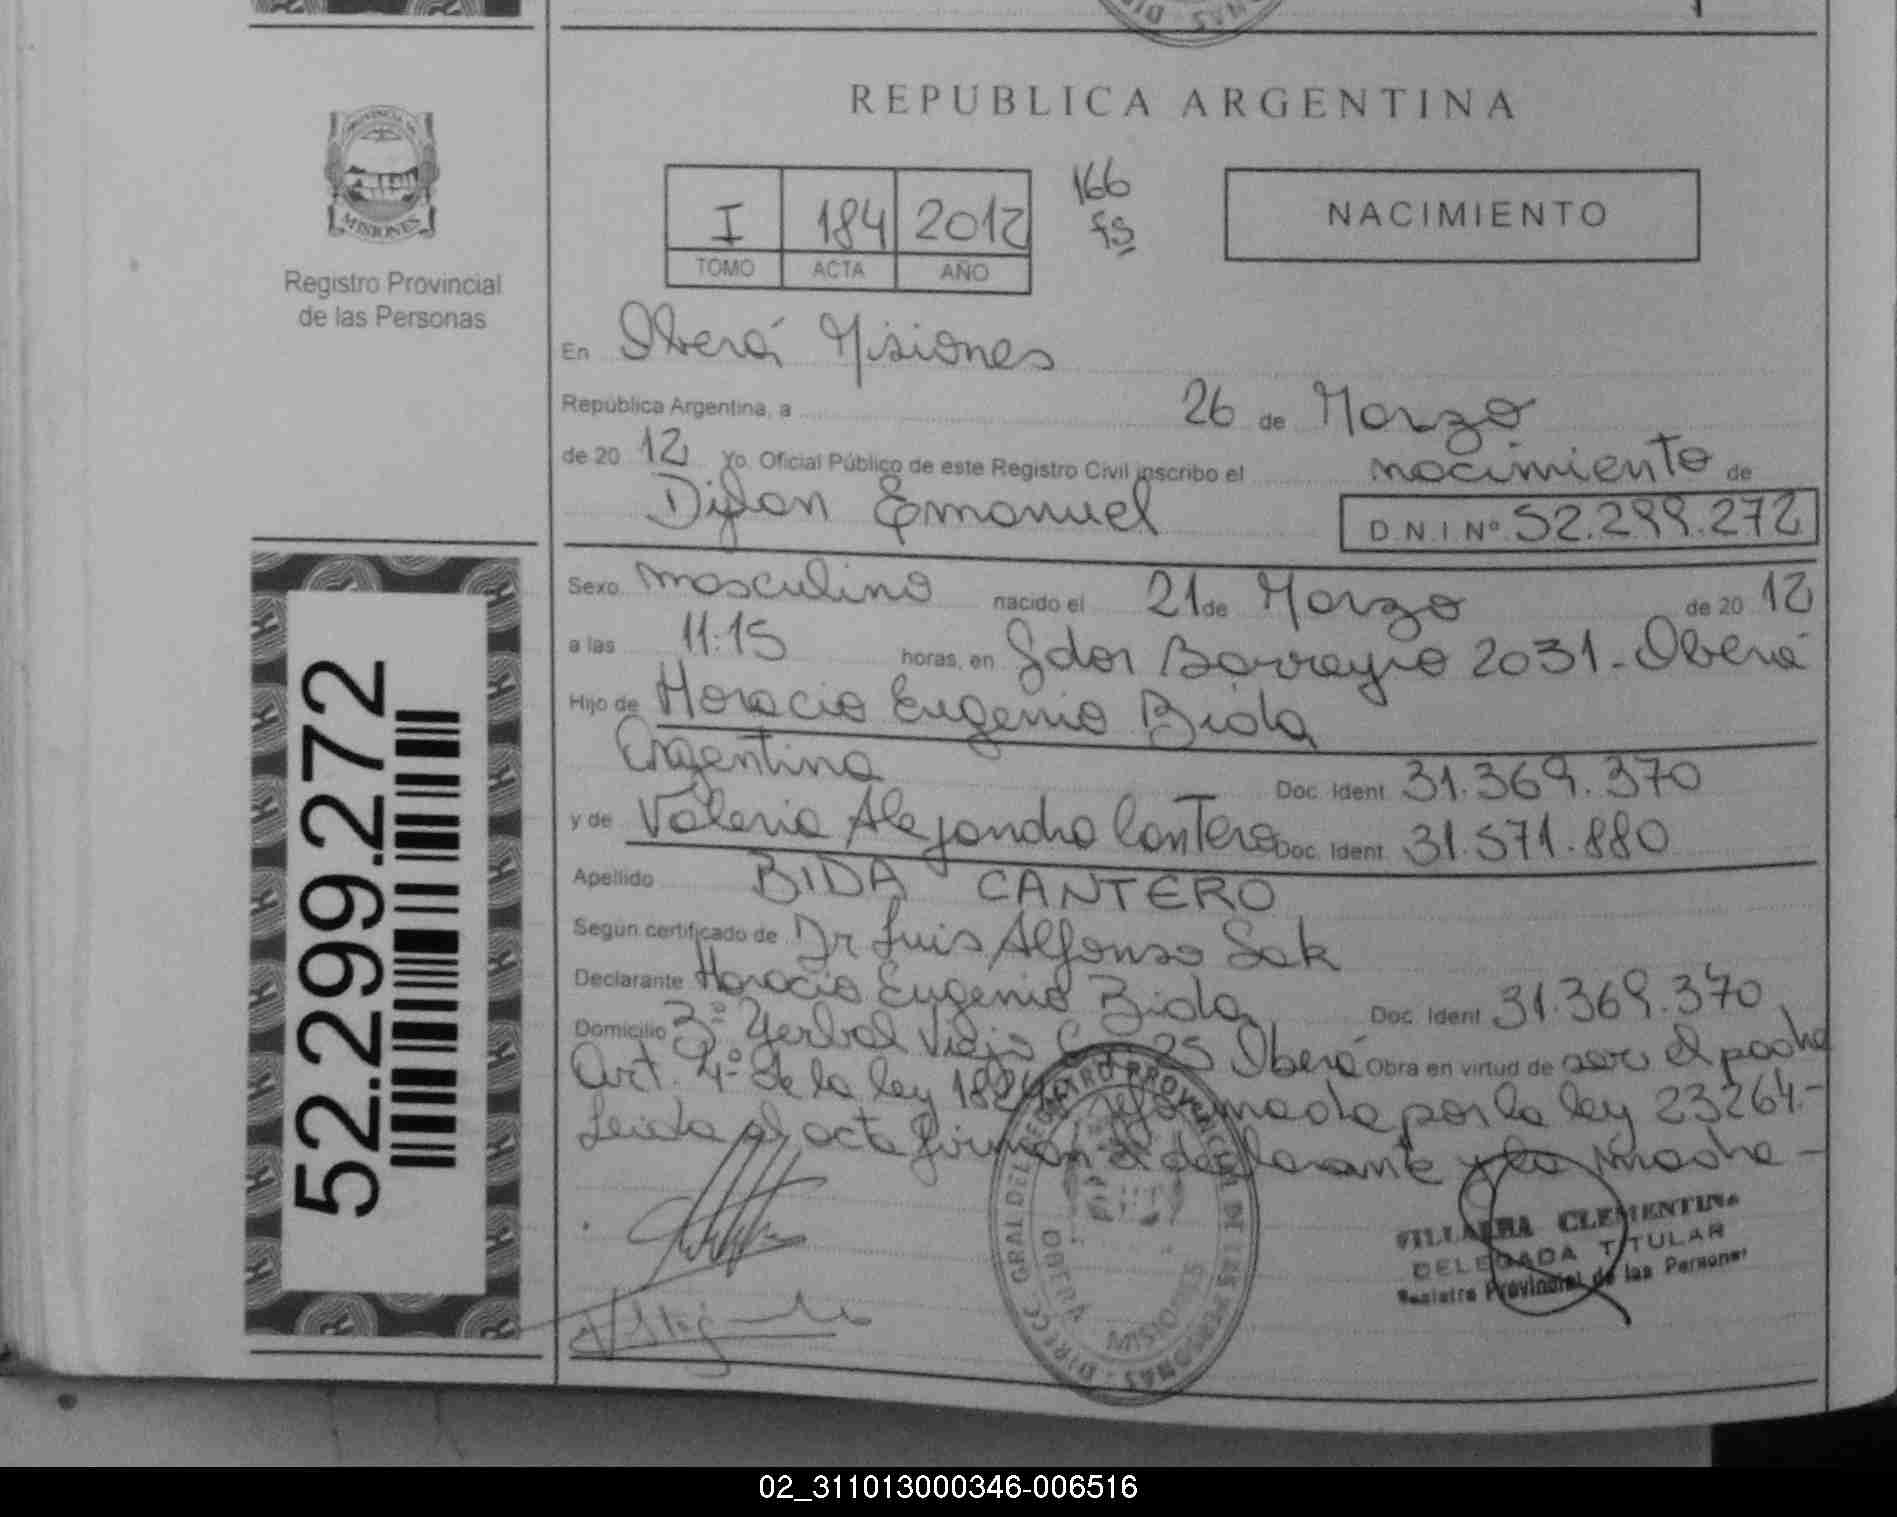 REPUBLICA ARGENTINA
MISIONES
Registro Provincial
de las Personas
I 184 2012
TOMO ACTA AÑO
166
fs
NACIMIENTO
En Oberá Misiones
República Argentina, a 26 de Marzo
de 20 12 Yo. Oficial Público de este Registro Civil inscribo el nacimiento de
Dylan Emanuel D.N.I Nº 52.299.272
Sexo masculino nacido el 21 de Marzo de 20 12
a las 11:15 horas, en Gdor Barreyro 2031 - Oberá
Hijo de Horacio Eugenio Bida
Argentina Doc. Ident. 31.369.370
y de Valeria Alejandra Cantero Doc. Ident. 31.571.880
Apellido BIDA CANTERO
Según certificado de Dr Luis Alfonso Sak
Declarante Horacio Eugenio Bida Doc. Ident. 31.369.370
Domicilio Yerbal Viejo 25 Oberá Obra en virtud de ser el padre
Art. 4º de la ley reformada por la ley 23264.-
Leida el acta firman el declarante y la madre -
DIRECC. GRAL DEL REGISTRO PROVINCIAL DE LAS PERSONAS
OBERÁ MISIONES
VILLALBA CLEMENTINA
DELEGADA TITULAR
Registro Provincial de las Personas
52.299.272
02_311013000346-006516